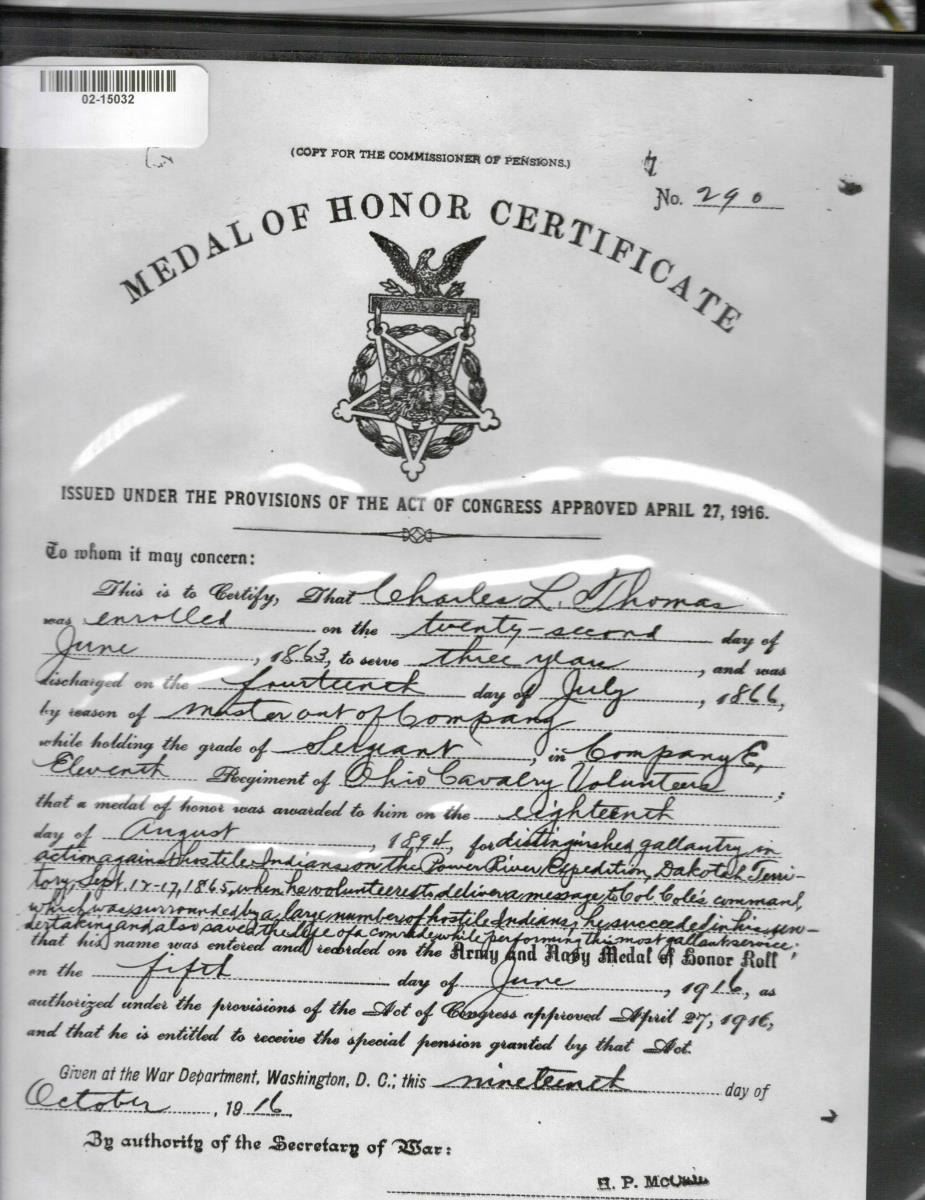 02-15032
(COPY FOR THE COMMISSIONER OF PENSIONS.)
No. 290
MEDAL OF HONOR CERTIFICATE
VALOR
ISSUED UNDER THE PROVISIONS OF THE ACT OF CONGRESS APPROVED APRIL 27, 1916.
To whom it may concern:
This is to Certify, That Charles L. Thomas
was enrolled on the twenty-second day of
June, 1863, to serve three years, and was
discharged on the fourteenth day of July, 1866,
by reason of Muster out of Company
while holding the grade of Sergeant, in Company E,
Eleventh Regiment of Ohio Cavalry Volunteers;
that a medal of honor was awarded to him on the eighteenth
day of August, 1894, for distinguished gallantry in
action against hostile Indians on the Powder River Expedition, Dakota Terri-
tory, Sept. 12-17, 1865, when he volunteered to deliver a message to Col Cole's command,
which was surrounded by a large number of hostile Indians; he succeeded in his un-
dertaking and also saved the life of a comrade while performing this most gallant service;
that his name was entered and recorded on the Army and Navy Medal of Honor Roll
on the fifth day of June, 1916, as
authorized under the provisions of the Act of Congress approved April 27, 1916,
and that he is entitled to receive the special pension granted by that Act.
Given at the War Department, Washington, D. C.; this nineteenth day of
October, 1916.
By authority of the Secretary of War:
H. P. McCain